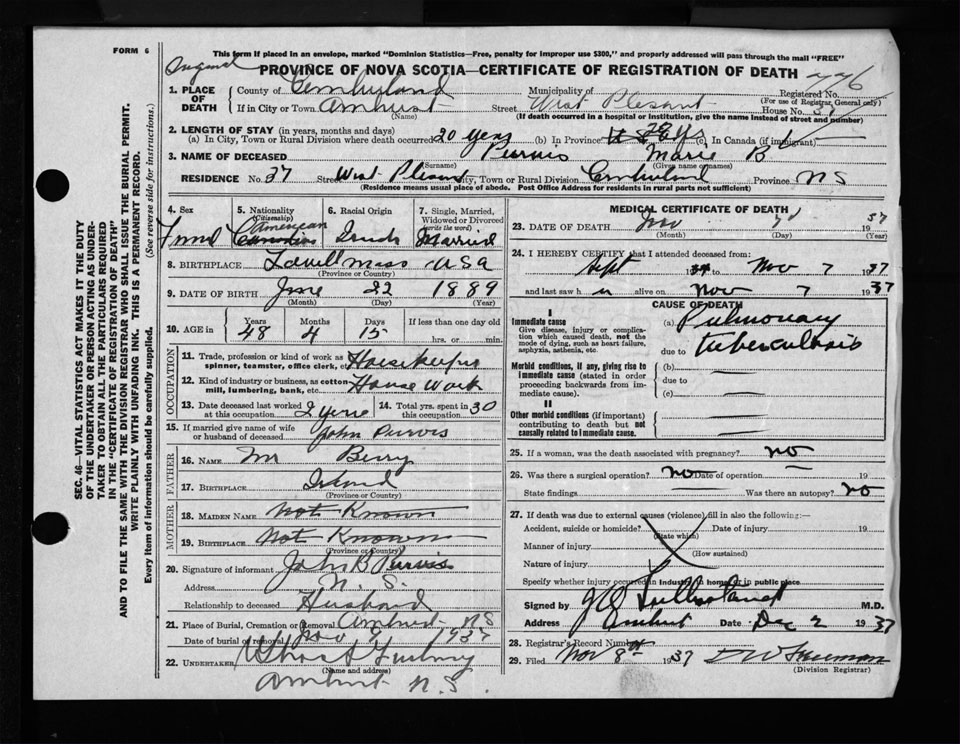 FORM 6
This form if placed in an envelope, marked "Dominion Statistics—Free, penalty for improper use $300," and properly addressed will pass through the mail "FREE"
PROVINCE OF NOVA SCOTIA—CERTIFICATE OF REGISTRATION OF DEATH
1. PLACE OF DEATH
County of Cumberland Municipality of Registered No.
(For use of Registrar General only)
If in City or Town Amherst Street West Plesant House No. 37
(Name) (If death occurred in a hospital or institution, give the name instead of street and number)
2. LENGTH OF STAY (in years, months and days)
(a) In City, Town or Rural Division where death occurred 20 years (b) In Province (c) In Canada (if immigrant)
3. NAME OF DECEASED Purvis Marie B
(Surname) (Given name or names)
RESIDENCE No. 37 Street West Plesant City, Town or Rural Division Cumberland Province NS
(Residence means usual place of abode. Post Office Address for residents in rural parts not sufficient)
4. Sex
5. Nationality (Citizenship) American
6. Racial Origin
7. Single, Married, Widowed or Divorced (write the word) Married
8. BIRTHPLACE Lowell Mass USA
(Province or Country)
9. DATE OF BIRTH June 22 1889
(Month) (Day) (Year)
10. AGE in Years Months Days If less than one day old
48 4 15 hrs. or min.
OCCUPATION
11. Trade, profession or kind of work as spinner, teamster, office clerk, etc. Housekeeper
12. Kind of industry or business, as cotton mill, lumbering, bank, etc. House Work
13. Date deceased last worked at this occupation 14. Total yrs. spent in this occupation 30
15. If married give name of wife or husband of deceased John Purvis
FATHER
16. NAME Mr Berry
17. BIRTHPLACE
(Province or Country)
MOTHER
18. MAIDEN NAME Not Known
19. BIRTHPLACE Not Known
(Province or Country)
20. Signature of informant John B Purviss
Address N.S.
Relationship to deceased Husband
21. Place of Burial, Cremation or Removal Amherst NS
Date of burial or removal Nov 9 1937
22. UNDERTAKER
(Name and address)
Amherst N.S.
MEDICAL CERTIFICATE OF DEATH
23. DATE OF DEATH Nov 7 1937
(Month) (Day) (Year)
24. I HEREBY CERTIFY that I attended deceased from:
Sept 1937 to Nov 7 1937
and last saw h er alive on Nov 7 1937
CAUSE OF DEATH
I
Immediate cause
Give disease, injury or complication which caused death, not the mode of dying, such as heart failure, asphyxia, asthenia, etc.
(a) Pulmonary
due to tuberculosis
Morbid conditions, if any, giving rise to immediate cause (stated in order proceeding backwards from immediate cause).
(b)
due to
(c)
II
Other morbid conditions (if important) contributing to death but not causally related to immediate cause.
25. If a woman, was the death associated with pregnancy? no
26. Was there a surgical operation? no Date of operation 19
State findings Was there an autopsy? no
27. If death was due to external causes (violence) fill in also the following:—
Accident, suicide or homicide? Date of injury 19
(State which)
Manner of injury
(How sustained)
Nature of injury
Specify whether injury occurred in industry, in home, or in public place
Signed by M.D.
Address Amherst Date Dec 2 1937
28. Registrar's Record Number
29. Filed Nov 8th 1937
(Division Registrar)
SEC. 46—VITAL STATISTICS ACT MAKES IT THE DUTY
OF THE UNDERTAKER OR PERSON ACTING AS UNDER-
TAKER TO OBTAIN ALL THE PARTICULARS REQUIRED
IN THE "CERTIFICATE OF REGISTRATION OF DEATH"
AND TO FILE THE SAME WITH THE DIVISION REGISTRAR WHO SHALL ISSUE THE BURIAL PERMIT.
WRITE PLAINLY WITH UNFADING INK. THIS IS A PERMANENT RECORD.
Every item of information should be carefully supplied. (See reverse side for instructions.)